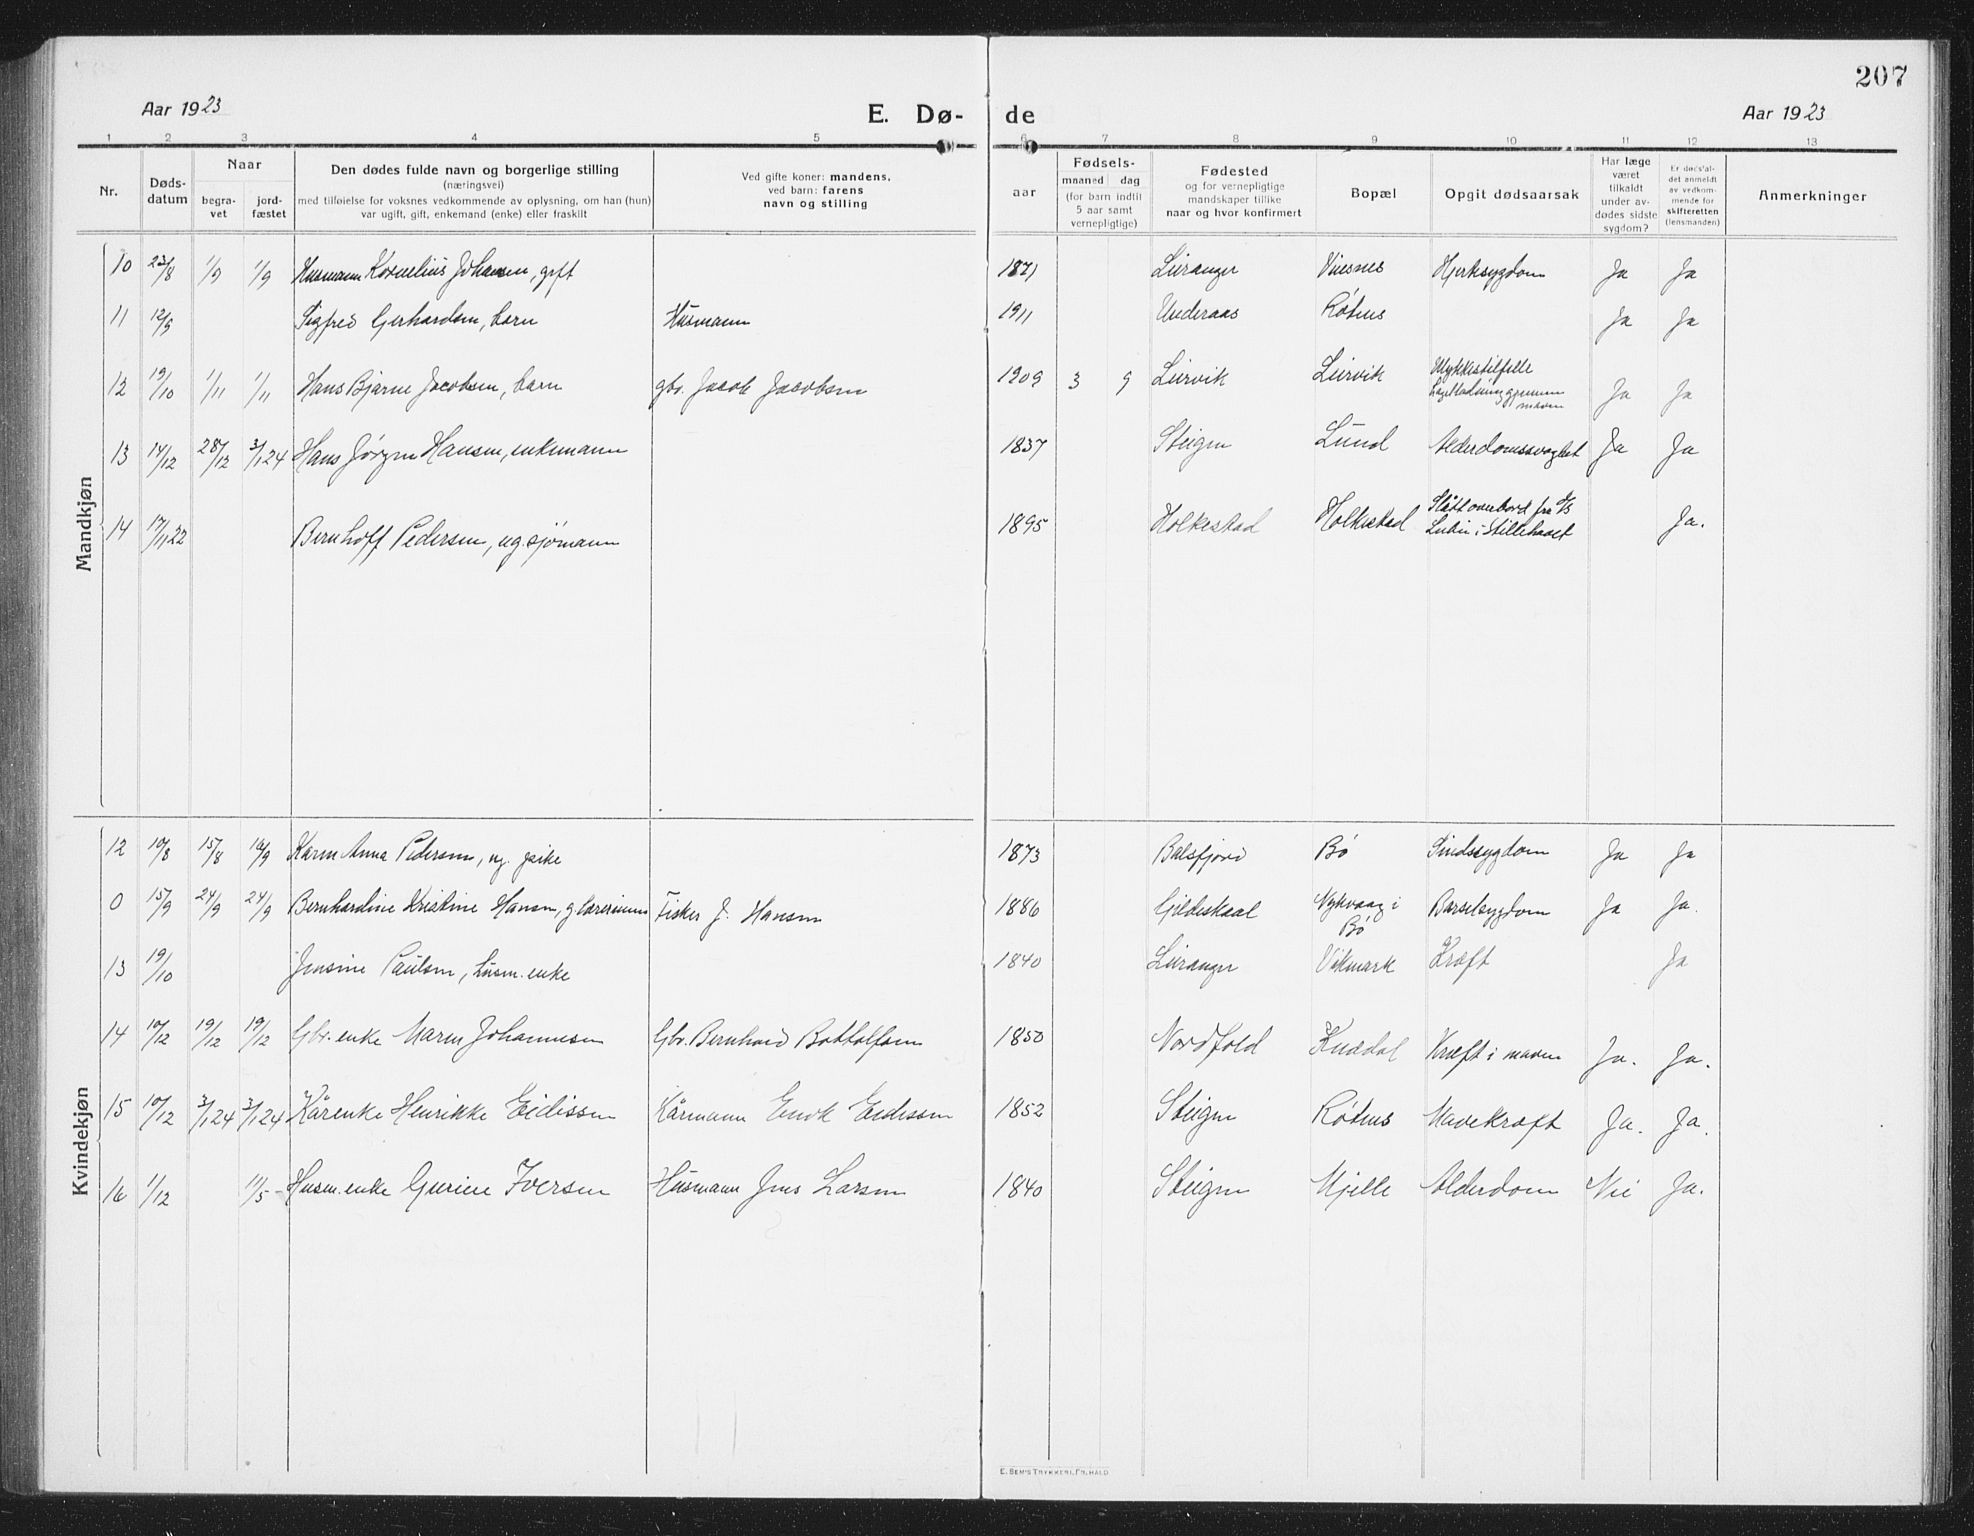 207
Aar 1923 E. Dø- de Aar 1923
1 2 3 4 5 6 7 8 9 10 11 12 13
Nr.
Døds-
datum
Naar
begra-
vet
jord-
fæstet
Den dødes fulde navn og borgerlige stilling
(næringsvei)
med tilføielse for voksnes vedkommende av oplysning, om han (hun)
var ugift, gift, enkemand (enke) eller fraskilt
Ved gifte koner: mandens,
ved barn: farens
navn og stilling
aar
Fødsels-
maaned dag
(for barn indtil
5 aar samt
vernepligtige)
Fødested
og for vernepligtige
mandskaper tillike
naar og hvor konfirmert
Bopæl
Opgit dødsaarsak
Har læge
været
tilkaldt
under av-
dødes sidste
sygdom?
Er døds'al-
det anmeldt
av vedkom-
mende for
skifteretten
(lensmanden)
Anmerkninger
Mandkjøn
10 23/8 1/9 1/9 Husmann Kornelius Johansen, gift 1871 Leiranger Hjertesygdom Ja Ja
11 12/9 Sigfred Gerhardsen, barn Husmann 1911 Røtnes Ja Ja
12 19/10 1/11 1/11 Hans Bjarne Jacobsen, barn gbr. Jacob Jacobsen 1909 3 9 Leirvik Leirvik Ulykkestilfelle Ja Ja
13 14/12 28/12 3/1 24 Hans Jørgen Hansen, enkemann 1837 Steigen Lund Alderdomssvaghet Ja Ja
14 17/11 22 Bernhoff Pedersen, ug. sjømann 1895 Holkestad Holkestad Slått overbord fra d/s
i Stillehavet Ja.
Kvindekjøn
12 10/8 15/8 16/9 Karen Anna Pedersen, ug. pike 1873 Balsfjord Bø Sindssygdom Ja Ja
0 15/9 24/9 24/9 Bernhardine Kristine Hansen, g. lærerinne Fisker J. Hansen 1886 Gildeskaal Nykvaag i
Bø Barselsygdom Ja Ja.
13 19/10 Jensine Paulsen, husm. enke 1840 Leiranger Vikmark Kræft Ja
14 10/12 19/12 19/12 Gbr. enke Maren Johannesen Gbr. Bernhard Bottolfsen 1850 Nordfold Kræft i maven Ja. Ja.
15 10/12 3/1 24 3/1 24 Kårenke Henrikke Eidissen Kårmann Enok Eidissen 1852 Steigen Røtnes Mavekræft Ja. Ja.
16 1/12 11/5 Husm. enke Gurine Iversen Husmann Jens Larsen 1840 Steigen Mjelle Alderdom Nei Ja.
E. SEM'S TRYKKERI, FR.HALD